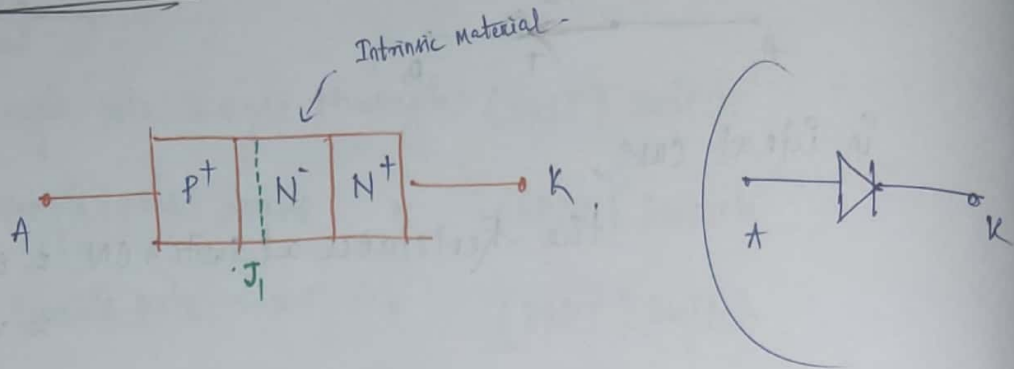 Intrinsic Material -
P+ N- N+
A K.
J1
A K